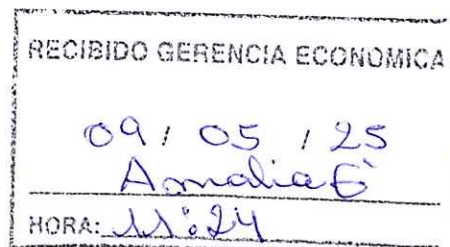 RECIBIDO GERENCIA ECONOMICA
09 / 05 / 25
Amalia E
HORA: 11:24